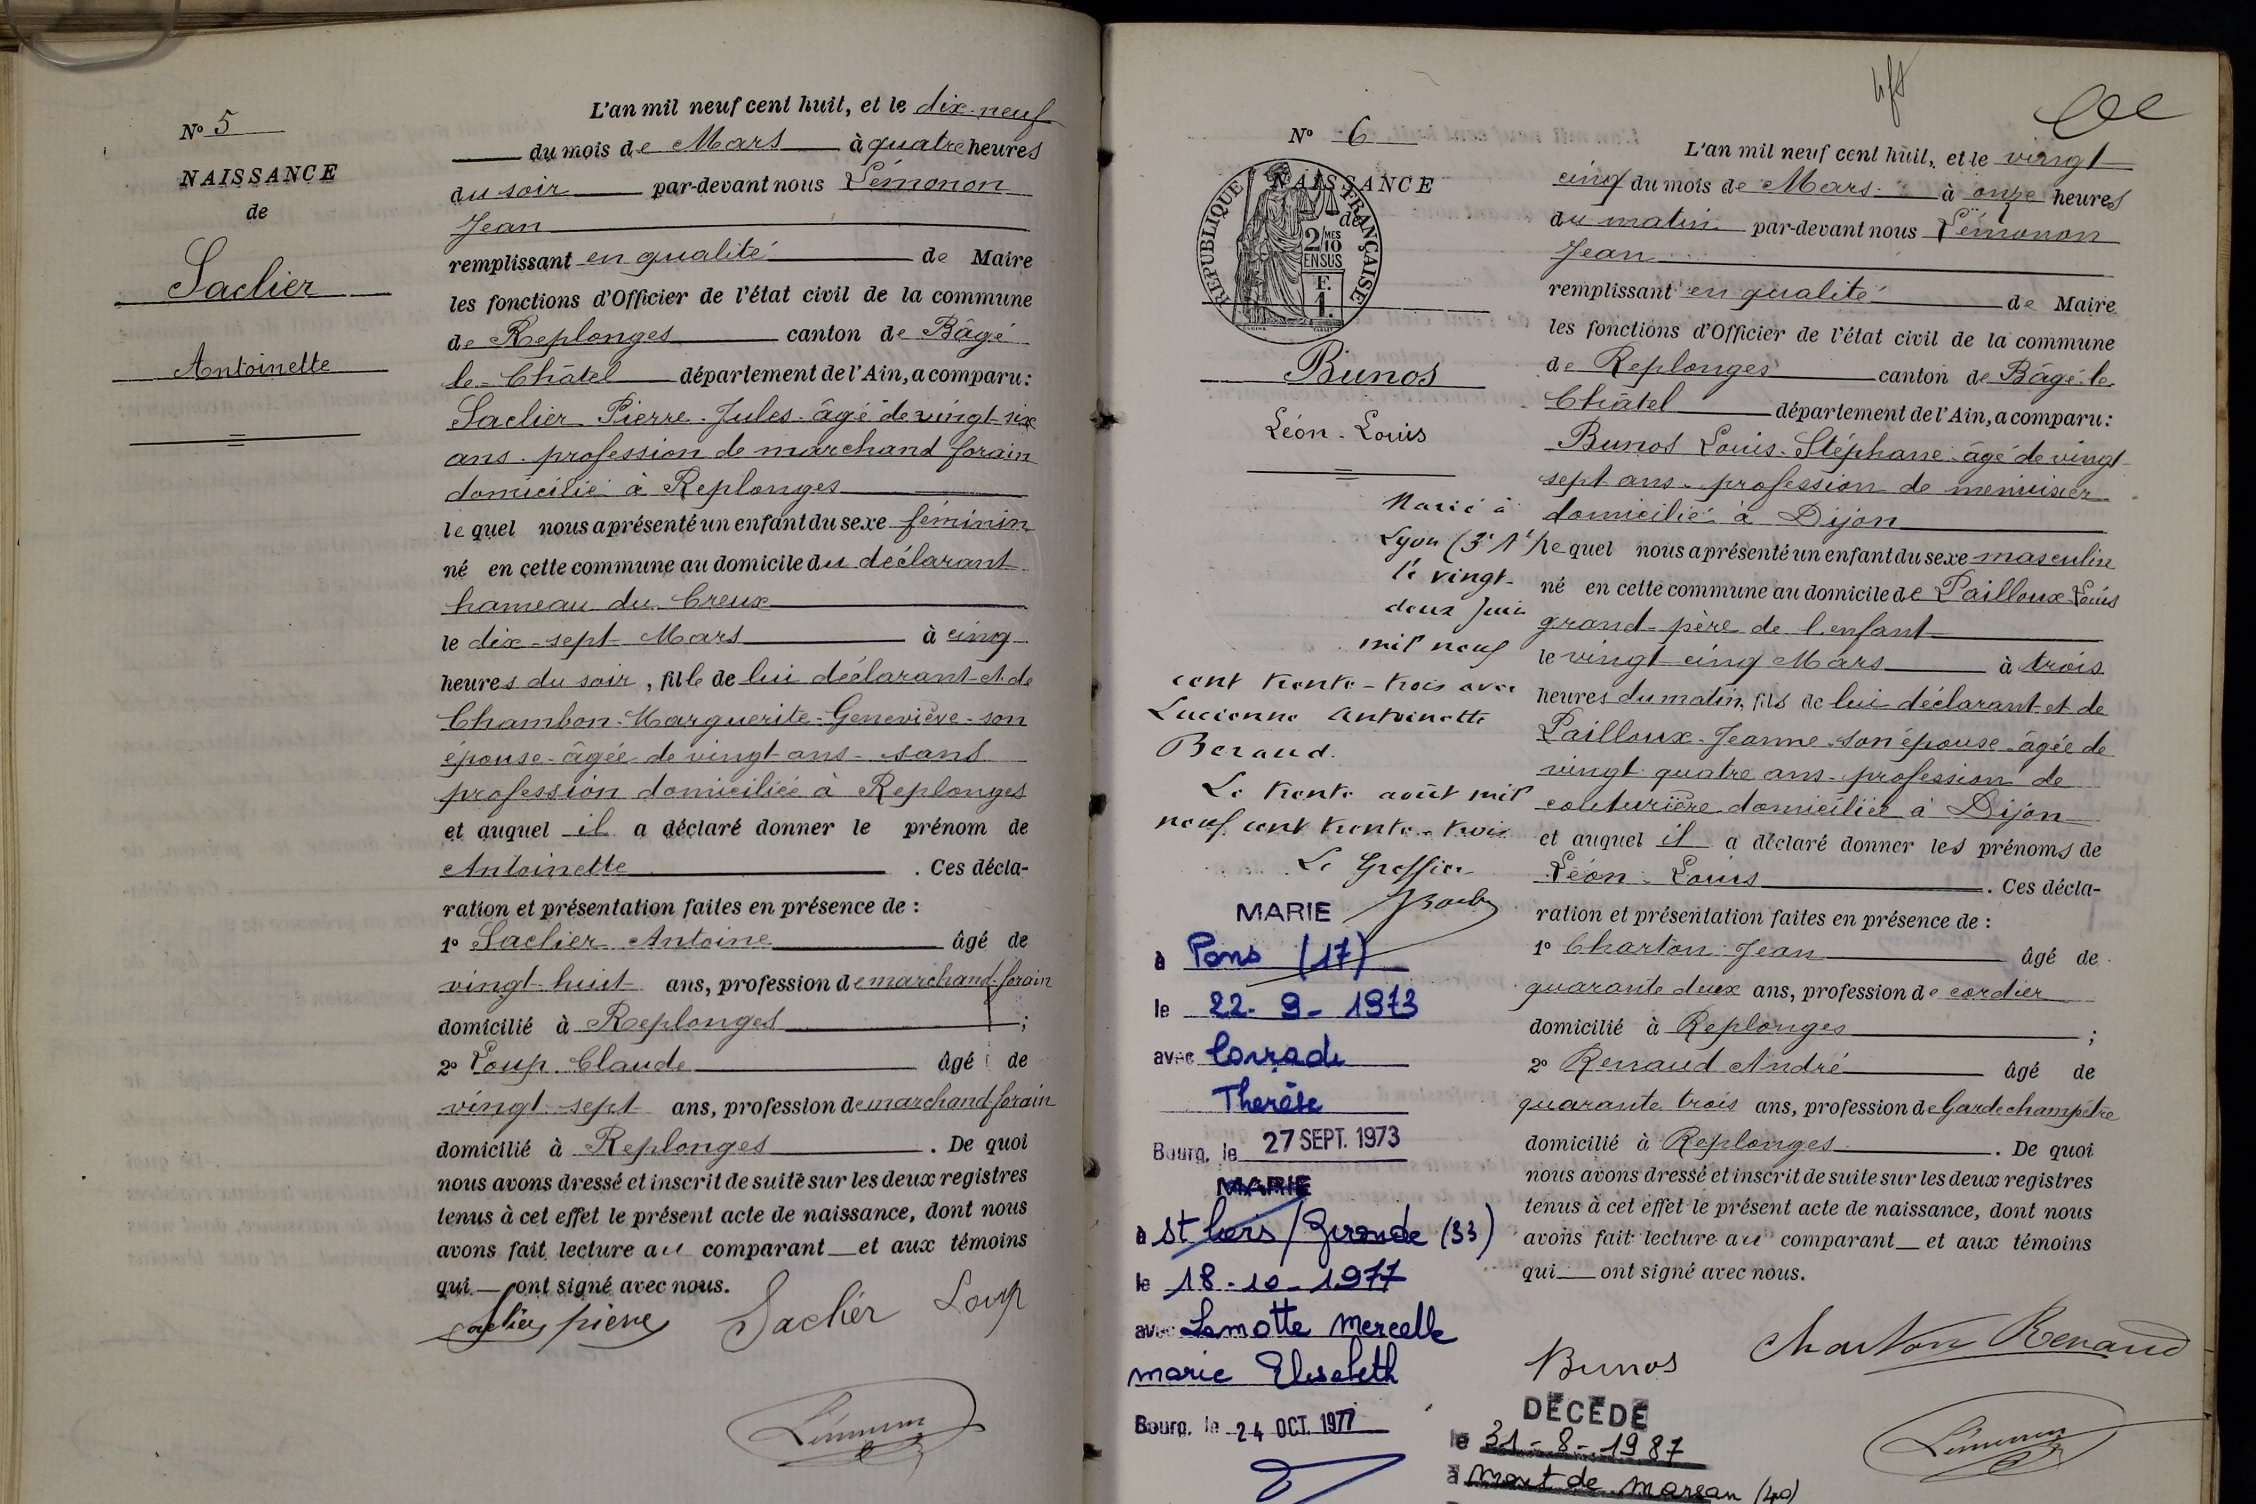 N° 5
NAISSANCE
de
Saclier
Antoinette
L'an mil neuf cent huit, et le dix-neuf
du mois de Mars à quatre heures
du soir par-devant nous Lémonon
Jean
remplissant en qualité de Maire
les fonctions d'Officier de l'état civil de la commune
de Replonges canton de Bâgé
le-Châtel département de l'Ain, a comparu:
Saclier Pierre-Jules-âgé de vingt-six
ans-profession de marchand forain
domicilié à Replonges
lequel nous a présenté un enfant du sexe féminin
né en cette commune au domicile du déclarant
hameau du Creux
le dix-sept Mars à cinq
heures du soir, fille de lui déclarant et de
Chambon-Marguerite-Geneviève-son
épouse-âgée de vingt ans-sans
profession domiciliée à Replonges
et auquel il a déclaré donner le prénom de
Antoinette. Ces décla-
ration et présentation faites en présence de:
1° Saclier Antoine âgé de
vingt-huit ans, profession de marchand-forain
domicilié à Replonges;
2° Loup Claude âgé de
vingt-sept ans, profession de marchand forain
domicilié à Replonges. De quoi
nous avons dressé et inscrit de suite sur les deux registres
tenus à cet effet le présent acte de naissance, dont nous
avons fait lecture au comparant et aux témoins
qui ont signé avec nous.
Saclier pierre Saclier Loup
Lémonon
N° 6
NAISSANCE
de
REPUBLIQUE FRANÇAISE
2/10 MES
EN SUS
F.
1.
Bunos
Léon-Louis
Marié à
Lyon (3e Art)
le vingt-
deux Juin
mil neuf
cent trente-trois avec
Lucienne Antoinette
Beraud.
Le trente août mil
neuf cent trente-trois
Le Greffier
MARIE
à Pons (17)
le 22-9-1973
avec Conrade
Therèse
Bourg, le 27 SEPT. 1973
MARIE
à St Ciers/Gironde (33)
le 18-10-1977
avec Lamotte Marcelle
marie Elisabeth
Bourg, le 24 OCT. 1977
L'an mil neuf cent huit, et le vingt
cinq du mois de Mars à onze heures
du matin par-devant nous Lémonon
Jean
remplissant en qualité de Maire
les fonctions d'Officier de l'état civil de la commune
de Replonges canton de Bâgé-le
Châtel département de l'Ain, a comparu:
Bunos Louis-Stéphane-âgé de vingt
sept ans-profession de menuisier
domicilié à Dijon
lequel nous a présenté un enfant du sexe masculin
né en cette commune au domicile de Pailloux Louis
grand-père de l'enfant
le vingt cinq Mars à trois
heures du matin, fils de lui déclarant et de
Pailloux-Jeanne-son épouse-âgée de
vingt quatre ans-profession de
couturière domiciliée à Dijon
et auquel il a déclaré donner les prénoms de
Léon-Louis. Ces décla-
ration et présentation faites en présence de:
1° Charton Jean âgé de
quarante deux ans, profession de cordier
domicilié à Replonges;
2° Renaud André âgé de
quarante trois ans, profession de Garde champêtre
domicilié à Replonges. De quoi
nous avons dressé et inscrit de suite sur les deux registres
tenus à cet effet le présent acte de naissance, dont nous
avons fait lecture au comparant et aux témoins
qui ont signé avec nous.
Bunos Charton Renaud
Lémonon
DÉCÉDÉ
le 31-8-1987
à Mont de Marsan (40)